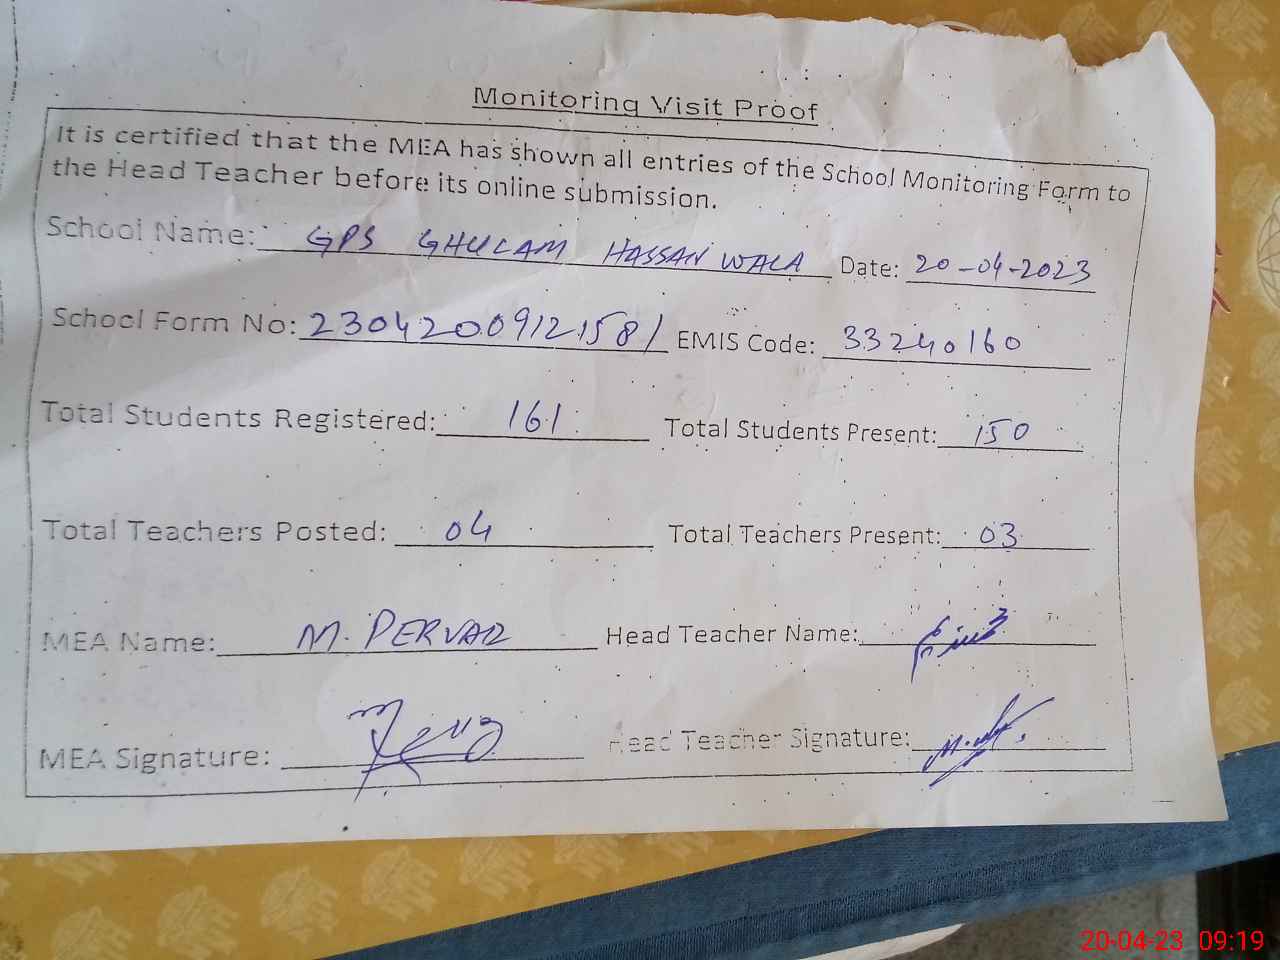 Monitoring Visit Proof
It is certified that the MEA has shown all entries of the School Monitoring Form to
the Head Teacher before its online submission.
School Name: GPS GHULAM HASSAN WALA Date: 20-04-2023
School Form No: 23042009121581 EMIS Code: 33240160
Total Students Registered: 161 Total Students Present: 150
Total Teachers Posted: 04 Total Teachers Present: 03
MEA Name: M. PERVAIZ Head Teacher Name:
MEA Signature: Head Teacher Signature:
20-04-23 09:19